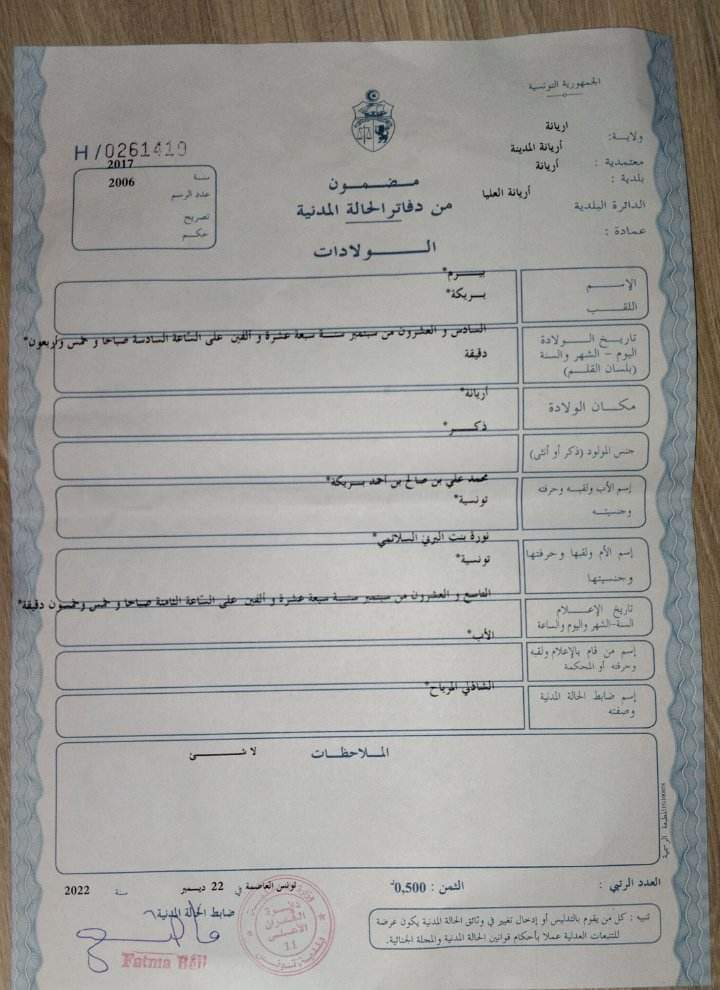 الجمهورية التونسية
ولاية: اريانة
معتمدية : أريانة المدينة
بلدية : أريانة
الدائرة البلدية أريانة العليا
عمادة :
H/0261419
سنة 2017
عدد الرسم 2006
تصريح
حكم
مضمون
من دفاتر الحالة المدنية
الولادات
الإسم بيرم*
اللقب بريكة*
تاريخ الولادة
اليوم - الشهر والسنة
(بلسان القلم)
السادس و العشرون من سبتمبر سنة سبعة عشرة و ألفين على الساعة السادسة صباحا و خمس وأربعون*
دقيقة
مكان الولادة أريانة*
جنس المولود (ذكر أو أنثى) ذكر*
إسم الأب ولقبه وحرفته
وجنسيته
محمد علي بن صالح بن احمد بريكة*
تونسية*
إسم الأم ولقبها وحرفتها
وجنسيتها
نورة بنت البرني السلاتمي*
تونسية*
تاريخ الإعلام
السنة-الشهر واليوم والساعة
التاسع و العشرون من سبتمبر سنة سبعة عشرة و ألفين على الساعة الثامنة صباحا و خمس وخمسون دقيقة*
إسم من قام بالإعلام ولقبه
وحرفته أو المحكمة
الأب*
إسم ضابط الحالة المدنية
وصفته
الشاذلي المرباح*
الملاحظات لا شئ
المطبعة الرسمية
العدد الرتبي :
الثمن : 0,500د
تونس العاصمة في 22 ديسمبر سنة 2022
ضابط الحالة المدنية
تنبيه : كل من يقوم بالتدليس أو إدخال تغيير في وثائق الحالة المدنية يكون عرضة
للتتبعات العدلية عملا بأحكام قوانين الحالة المدنية والمجلة الجنائية.
دائرة
العمران
الأعلى
11
Fatma Bell